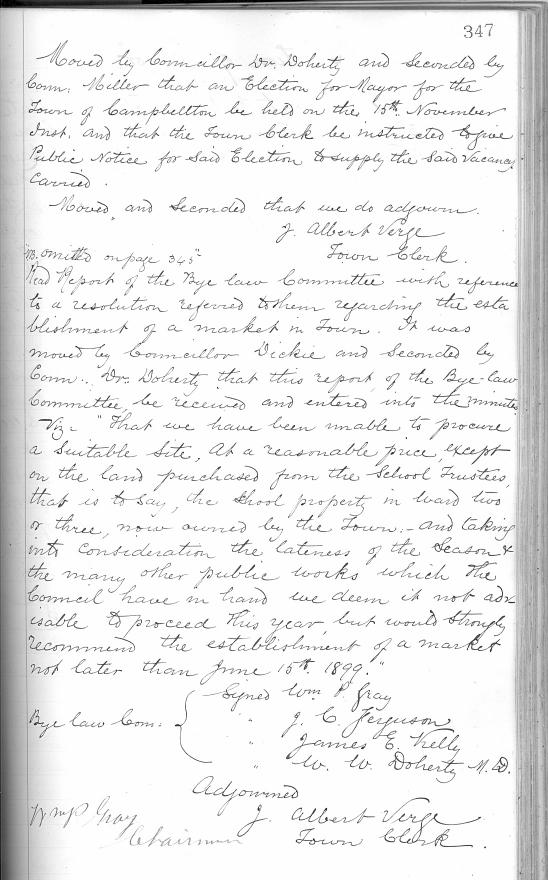 347
Moved by Councillor Dr. Doherty and Seconded by
Coun. Miller that an Election for Mayor for the
Town of Campbellton be held on the 15th November
Inst. and that the Town Clerk be instructed to give
Public Notice for Said Election to supply the said vacancy
Carried.
Moved and Seconded that we do adjourn.
J. Albert Verge
Town Clerk.
"NB. omitted on page 345"
Read Report of the Bye law Committee with reference
to a resolution referred to them regarding the esta
blishment of a market in Town. It was
moved by Councillor Dickie and Seconded by
Coun. Dr. Doherty that this report of the Bye-law
Committee, be received and entered into the minutes
Viz- "That we have been unable to procure
a suitable site, at a reasonable price, except
on the land purchased from the School Trustees,
that is to say, the School property in ward two
or three, now owned by the Town.- and taking
into consideration the lateness of the Season &
the many other public works which the
Council have in hand we deem it not adv-
isable to proceed this year, but would strongly
recommend the establishment of a market
not later than June 15th 1899."
Signed Wm P. Gray
Bye law Com: " J. C. Ferguson
James E. Kelly
" W. W. Doherty M.D.
Adjourned
Wm P Gray J. Albert Verge
Chairman Town Clerk.